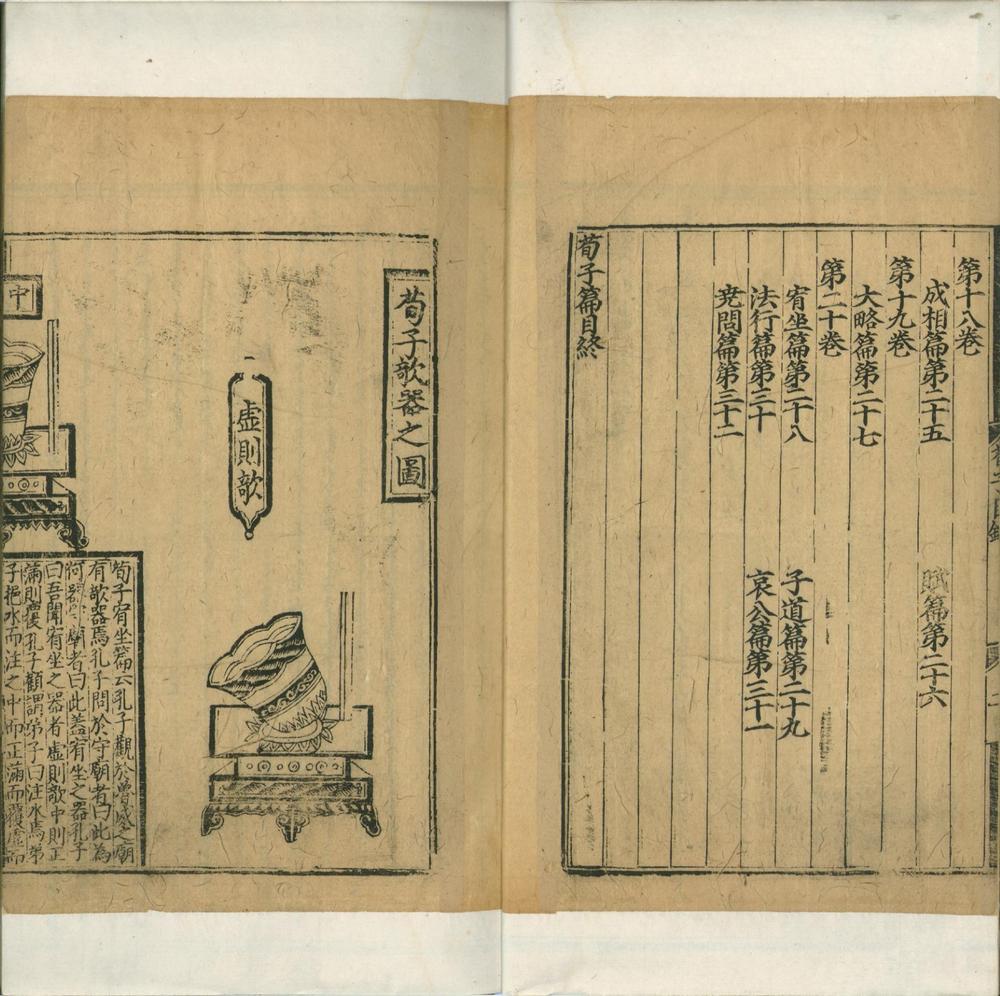 第十八卷
成相篇第二十五
賦篇第二十六
第十九卷
大略篇第二十七
第二十卷
宥坐篇第二十八
子道篇第二十九
法行篇第三十
哀公篇第三十一
尭問篇第三十二
荀子篇目終
荀子欹器之圖
虛則欹
中
荀子宥坐篇云孔子觀於魯之廟
有欹器焉孔子問於守廟者曰此為
何器守廟者曰此蓋宥坐之器孔子
曰吾聞宥坐之器者虛則欹中則正
滿則覆孔子顧謂弟子曰注水焉弟
子挹水而注之中而正滿而覆虛而